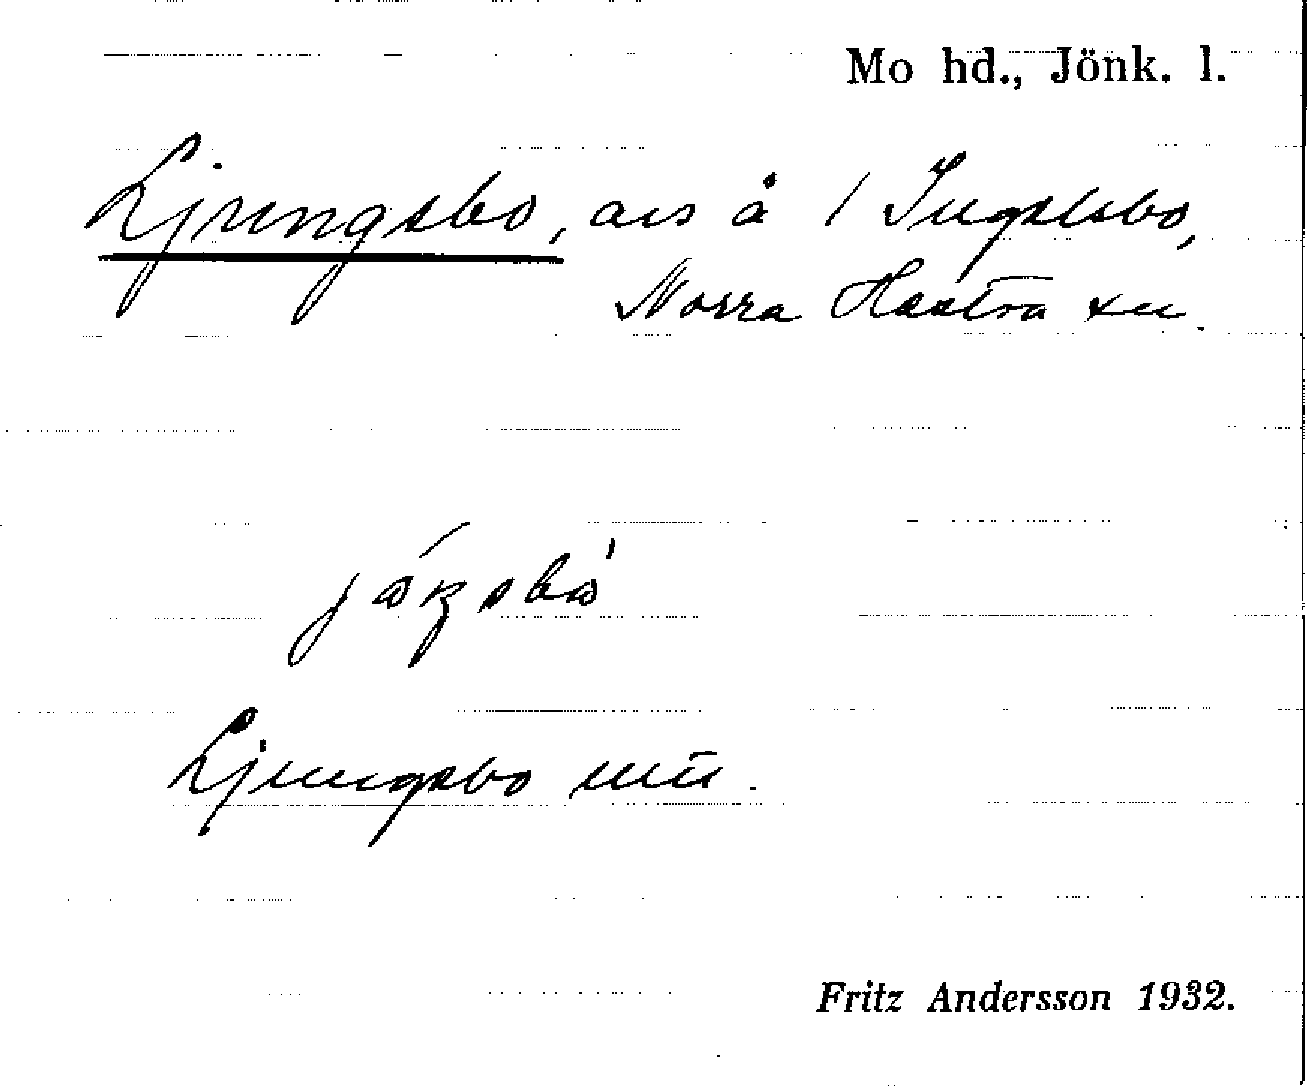 Mo hd., Jönk. l.
Ljungsbo, avs å 1 Ingelsbo,
Norra Hestra sn.
Ljungsbo
Fritz Andersson 1932.